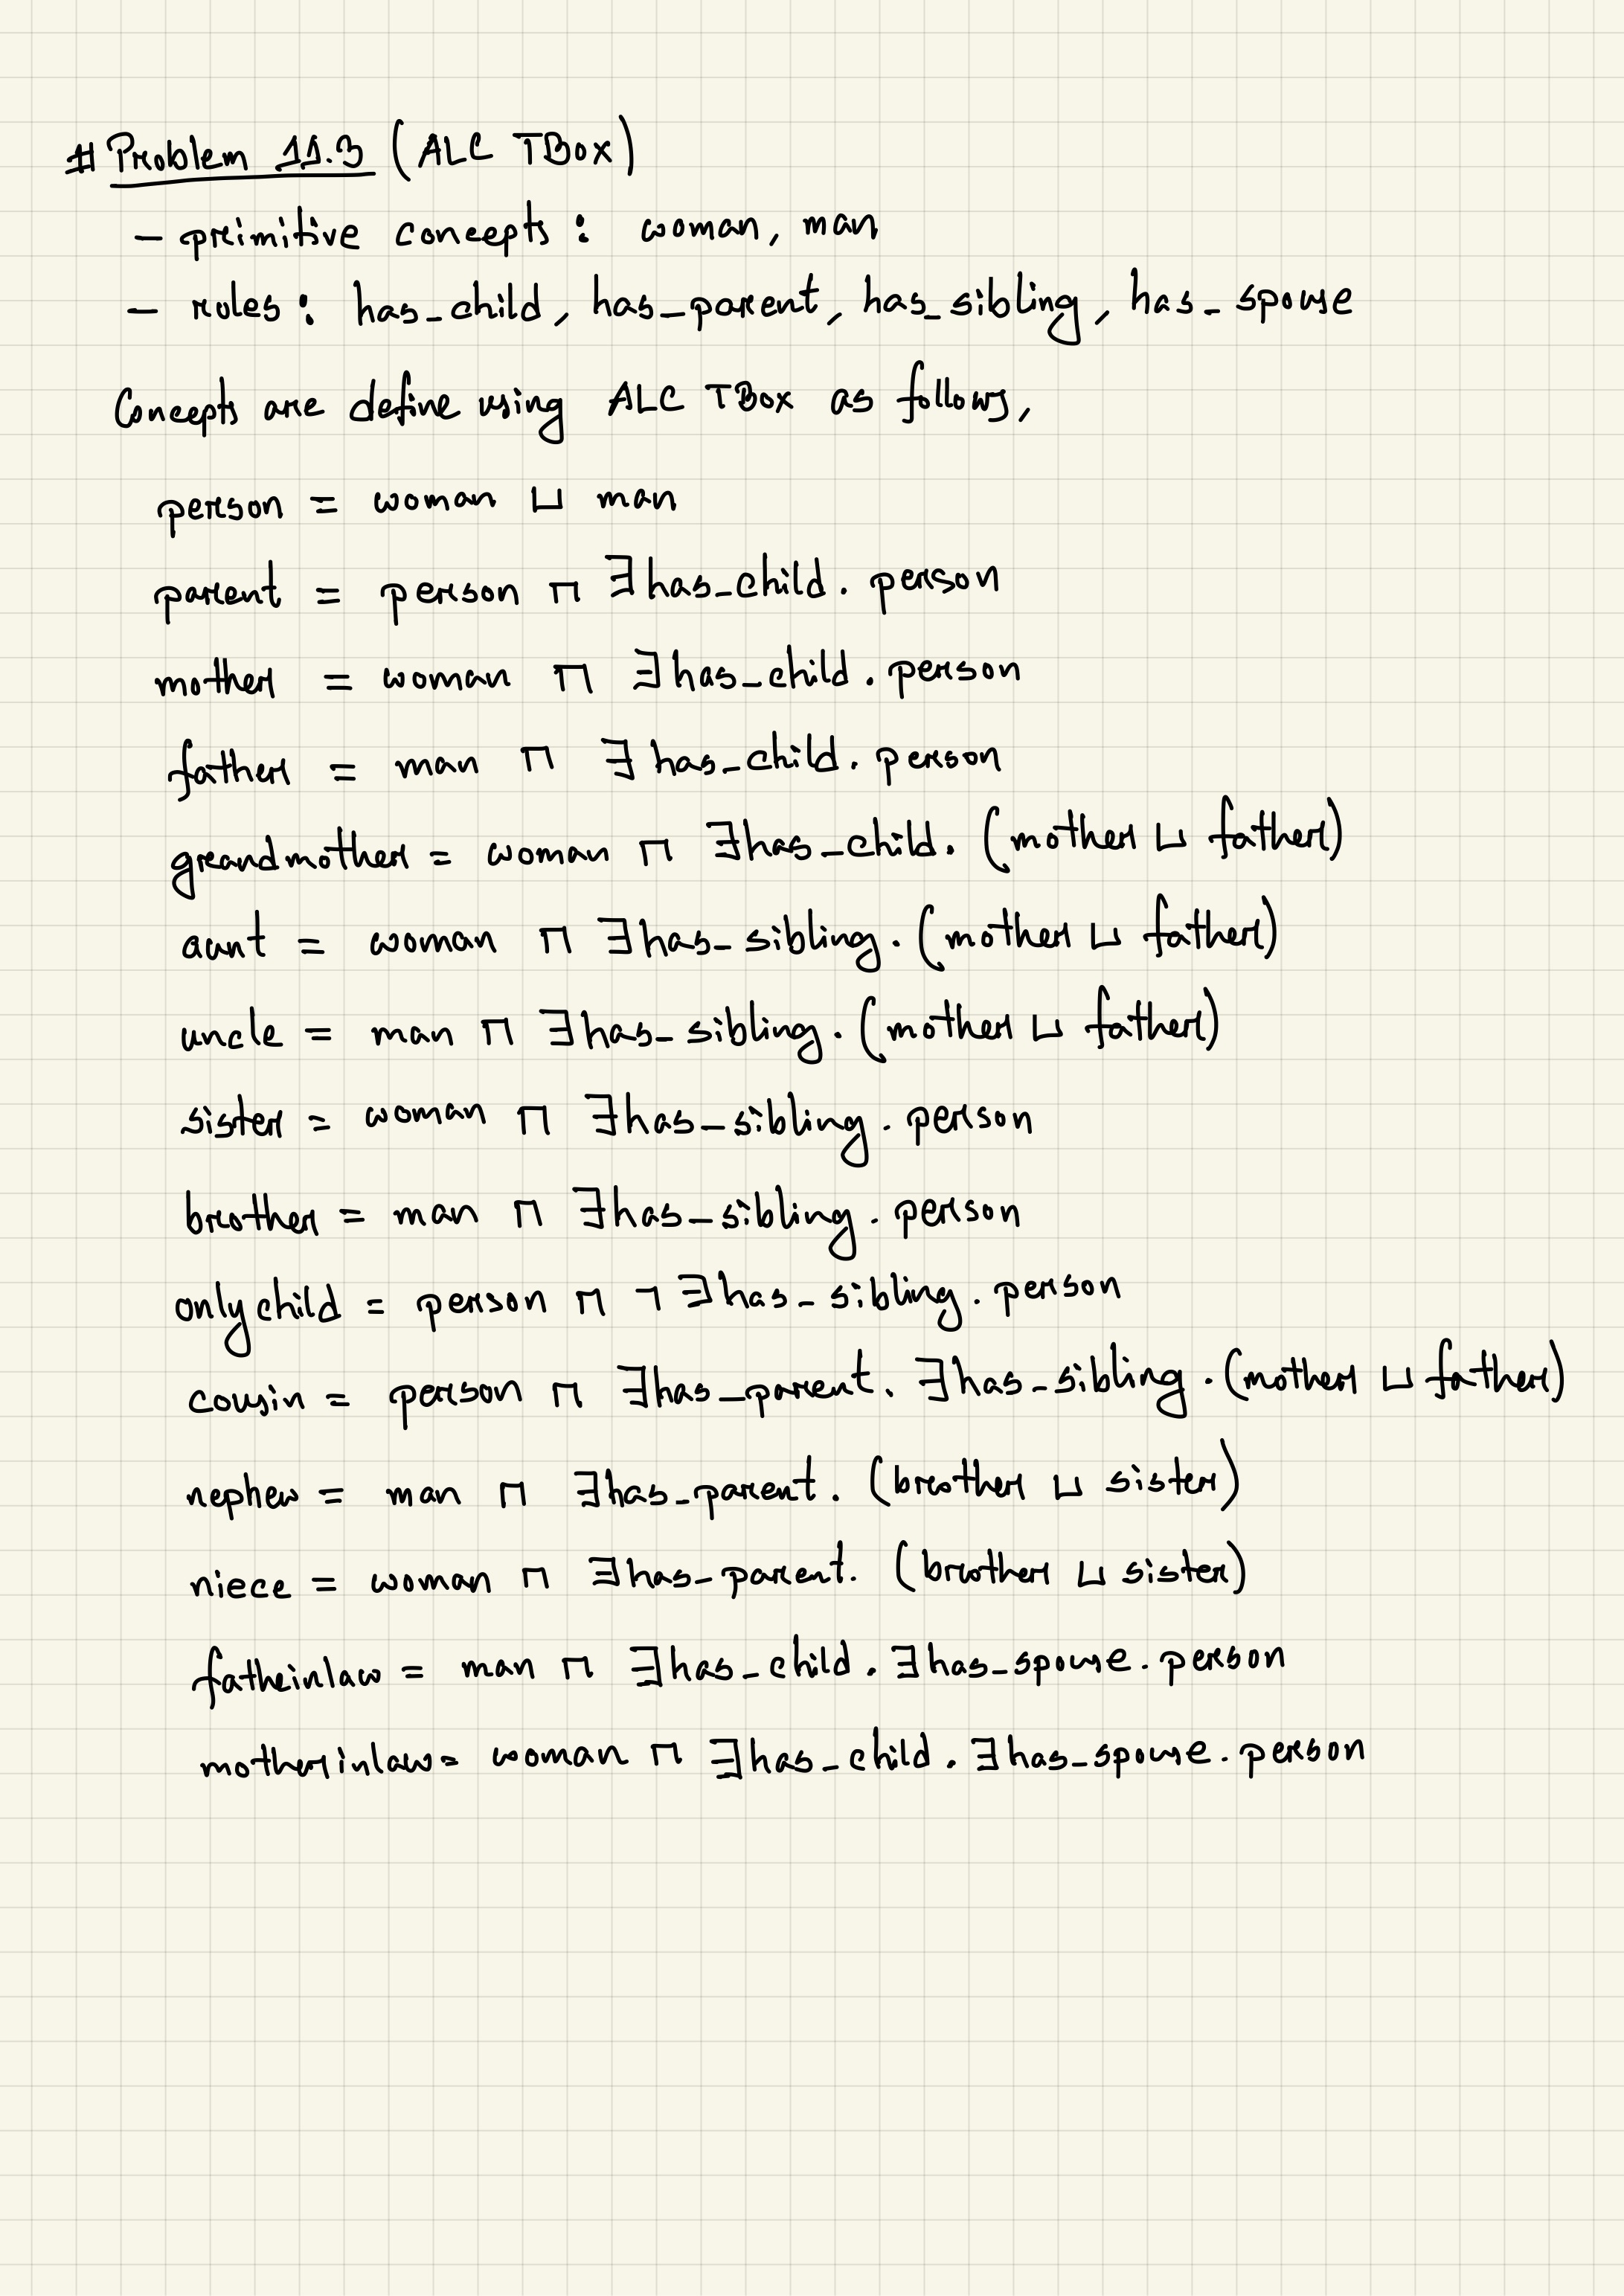 # Problem 11.3 (ALC TBox)
- primitive concepts: woman, man
- roles: has_child, has_parent, has_sibling, has_spouse
Concepts are define using ALC TBox as follows,
person = woman ⊔ man
parent = person ⊓ ∃has_child. person
mother = woman ⊓ ∃has_child. person
father = man ⊓ ∃has_child. person
grandmother = woman ⊓ ∃has_child. (mother ⊔ father)
aunt = woman ⊓ ∃has_sibling. (mother ⊔ father)
uncle = man ⊓ ∃has_sibling. (mother ⊔ father)
sister = woman ⊓ ∃has_sibling. person
brother = man ⊓ ∃has_sibling. person
onlychild = person ⊓ ¬∃has_sibling. person
cousin = person ⊓ ∃has_parent. ∃has_sibling. (mother ⊔ father)
nephew = man ⊓ ∃has_parent. (brother ⊔ sister)
niece = woman ⊓ ∃has_parent. (brother ⊔ sister)
fatheinlaw = man ⊓ ∃has_child. ∃has_spouse. person
motherinlaw = woman ⊓ ∃has_child. ∃has_spouse. person